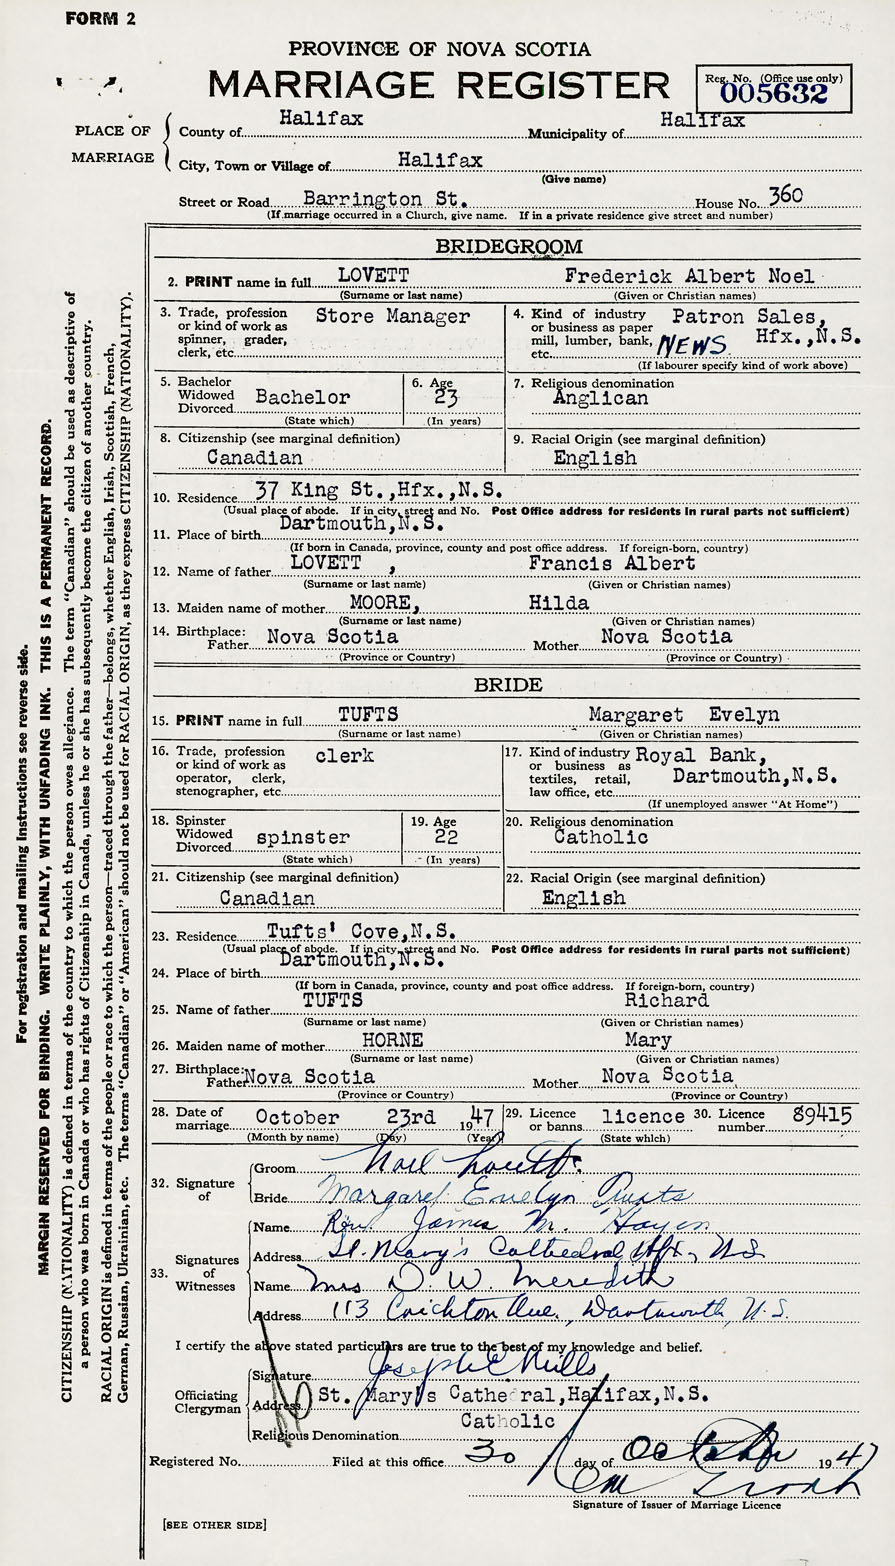 FORM 2
PROVINCE OF NOVA SCOTIA
MARRIAGE REGISTER
Reg. No. (Office use only)
005632
PLACE OF MARRIAGE
County of Halifax Municipality of Halifax
City, Town or Village of Halifax
(Give name)
Street or Road Barrington St. House No. 360
(If marriage occurred in a Church, give name. If in a private residence give street and number)
BRIDEGROOM
2. PRINT name in full LOVETT Frederick Albert Noel
(Surname or last name) (Given or Christian names)
3. Trade, profession or kind of work as spinner, grader, clerk, etc. Store Manager
4. Kind of industry or business as paper mill, lumber, bank, etc. Patron Sales, NEWS. Hfx.,N.S.
(If labourer specify kind of work above)
5. Bachelor Widowed Divorced Bachelor
(State which)
6. Age 23
(In years)
7. Religious denomination
Anglican
8. Citizenship (see marginal definition)
Canadian
9. Racial Origin (see marginal definition)
English
10. Residence 37 King St.,Hfx.,N.S.
(Usual place of abode. If in city, street and No. Post Office address for residents in rural parts not sufficient)
11. Place of birth Dartmouth,N.S.
(If born in Canada, province, county and post office address. If foreign-born, country)
12. Name of father LOVETT , Francis Albert
(Surname or last name) (Given or Christian names)
13. Maiden name of mother MOORE, Hilda
(Surname or last name) (Given or Christian names)
14. Birthplace: Father Nova Scotia Mother Nova Scotia
(Province or Country) (Province or Country)
BRIDE
15. PRINT name in full TUFTS Margaret Evelyn
(Surname or last name) (Given or Christian names)
16. Trade, profession or kind of work as operator, clerk, stenographer, etc. clerk
17. Kind of industry or business as textiles, retail, law office, etc. Royal Bank, Dartmouth,N.S.
(If unemployed answer "At Home")
18. Spinster Widowed Divorced spinster
(State which)
19. Age 22
(In years)
20. Religious denomination
Catholic
21. Citizenship (see marginal definition)
Canadian
22. Racial Origin (see marginal definition)
English
23. Residence Tufts' Cove,N.S.
(Usual place of abode. If in city, street and No. Post Office address for residents in rural parts not sufficient)
24. Place of birth Dartmouth,N.S.
(If born in Canada, province, county and post office address. If foreign-born, country)
25. Name of father TUFTS Richard
(Surname or last name) (Given or Christian names)
26. Maiden name of mother HORNE Mary
(Surname or last name) (Given or Christian names)
27. Birthplace: Father Nova Scotia Mother Nova Scotia
(Province or Country) (Province or Country)
28. Date of marriage October 23rd 1947
(Month by name) (Day) (Year)
29. Licence or banns licence
(State which)
30. Licence number 89415
32. Signature of
Groom Noel Lovett
Bride Margaret Evelyn Tufts
33. Signatures of Witnesses
Name Rev. James M. Hayes
Address St. Mary's Cathedral Hfx, N.S
Name Mrs D. W. Meredith
Address 113 Crichton Ave., Dartmouth, N.S.
I certify the above stated particulars are true to the best of my knowledge and belief.
Officiating Clergyman
Signature Joseph E Mills
Address St. Mary's Cathedral,Halifax,N.S.
Religious Denomination Catholic
Registered No. Filed at this office 30 day of October 1947
Signature of Issuer of Marriage Licence
[SEE OTHER SIDE]
For registration and mailing instructions see reverse side.
MARGIN RESERVED FOR BINDING. WRITE PLAINLY, WITH UNFADING INK. THIS IS A PERMANENT RECORD.
CITIZENSHIP (NATIONALITY) is defined in terms of the country to which the person owes allegiance. The term "Canadian" should be used as descriptive of
a person who was born in Canada or who has rights of Citizenship in Canada, unless he or she has subsequently become the citizen of another country.
RACIAL ORIGIN is defined in terms of the people or race to which the person—traced through the father—belongs, whether English, Irish, Scottish, French,
German, Russian, Ukrainian, etc. The terms "Canadian" or "American" should not be used for RACIAL ORIGIN, as they express CITIZENSHIP (NATIONALITY).